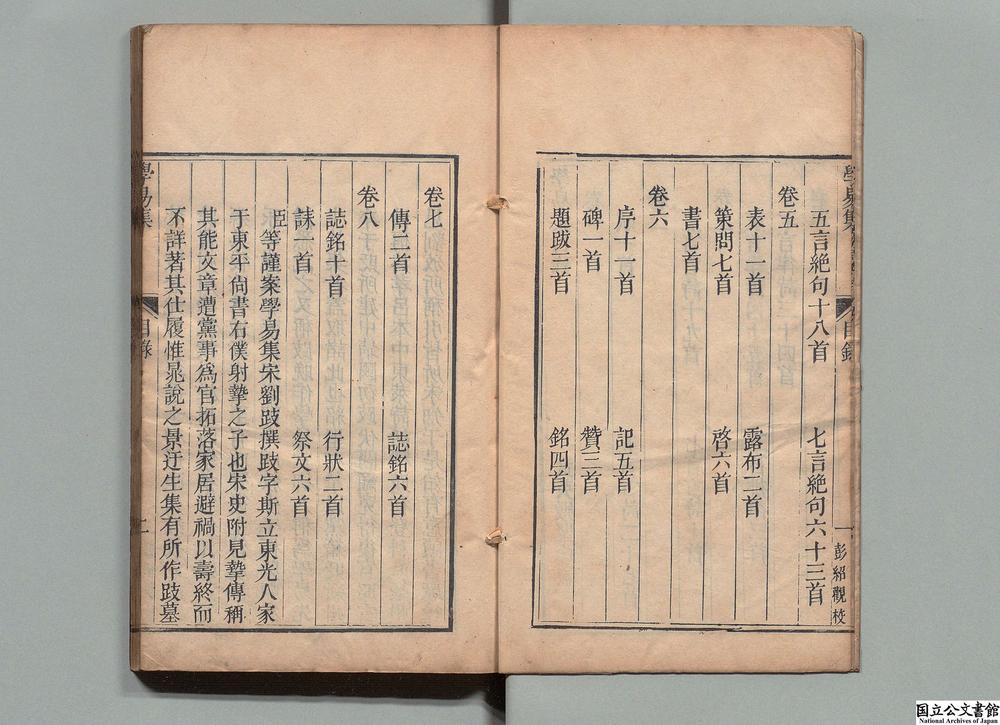 學易集
目錄
一
彭紹觀校
五言絶句十八首　七言絶句六十三首
卷五
表十一首　露布二首
策問七首　啓六首
書七首
卷六
序十一首　記五首
碑一首　贊三首
題跋三首　銘四首
卷七
傳二首　誌銘六首
卷八
誌銘十首　行狀二首
誄一首　祭文六首
臣等謹案學易集宋劉跂撰跂字斯立東光人家
于東平尚書右僕射摯之子也宋史附見摯傳稱
其能文章遭黨事爲官拓落家居避禍以壽終而
不詳著其仕履惟晁說之景迂生集有所作跂墓
學易集
目錄
二
国立公文書館
National Archives of Japan